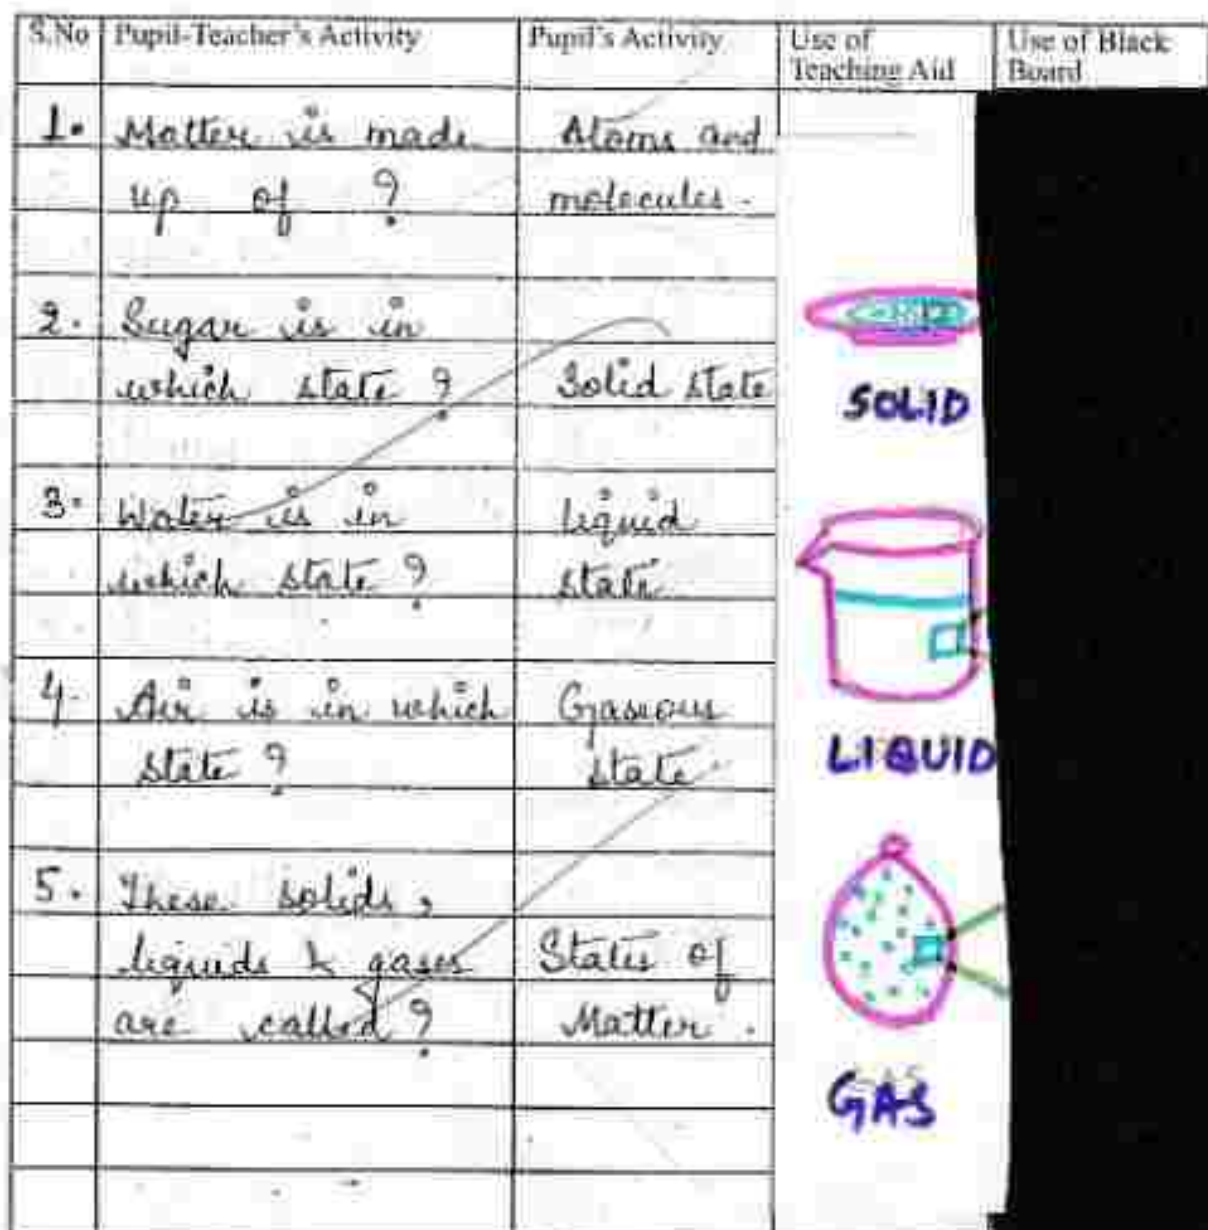 S.No
Pupil-Teacher's Activity
Pupil's Activity
Use of
Teaching Aid
Use of Black
Board
1.
Matter is made
up of ?
Atoms and
molecules.
2.
Sugar is in
which state ?
Solid state
SOLID
3.
Water is in
which state ?
Liquid
state
LIQUID
4.
Air is in which
state ?
Gaseous
state
5.
These solids,
liquids & gases
are called ?
States of
Matter.
GAS